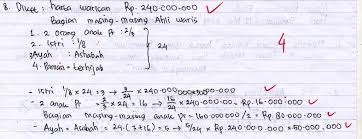 8. Diket: harta warisan Rp. 240.000.000
Bagian masing-masing Ahli waris
1. 2 orang anak Pr : 2/3
2. Istri : 1/8
3. Ayah : Ashabah
4. Paman = terhijab
24
4
- Istri 1/8 x 24 = 3 → 3/24 x 240.000.000
- 2 anak Pr = 2/3 x 24 = 16 → 16/24 x 240.000.000 = Rp. 16.000.000
Bagian masing-masing anak Pr = 160.000.000 / 2 = Rp. 80.000.000
- Ayah = Asabah = 24 - (3+16) = 5 → 5/24 x Rp. 240.000.000 = 50.000.000